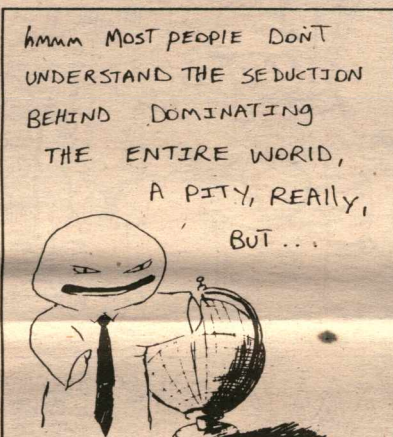 hmmm MOST PEOPLE DON'T
UNDERSTAND THE SEDUCTION
BEHIND DOMINATING
THE ENTIRE WORLD,
A PITY, REAlly,
BUT...